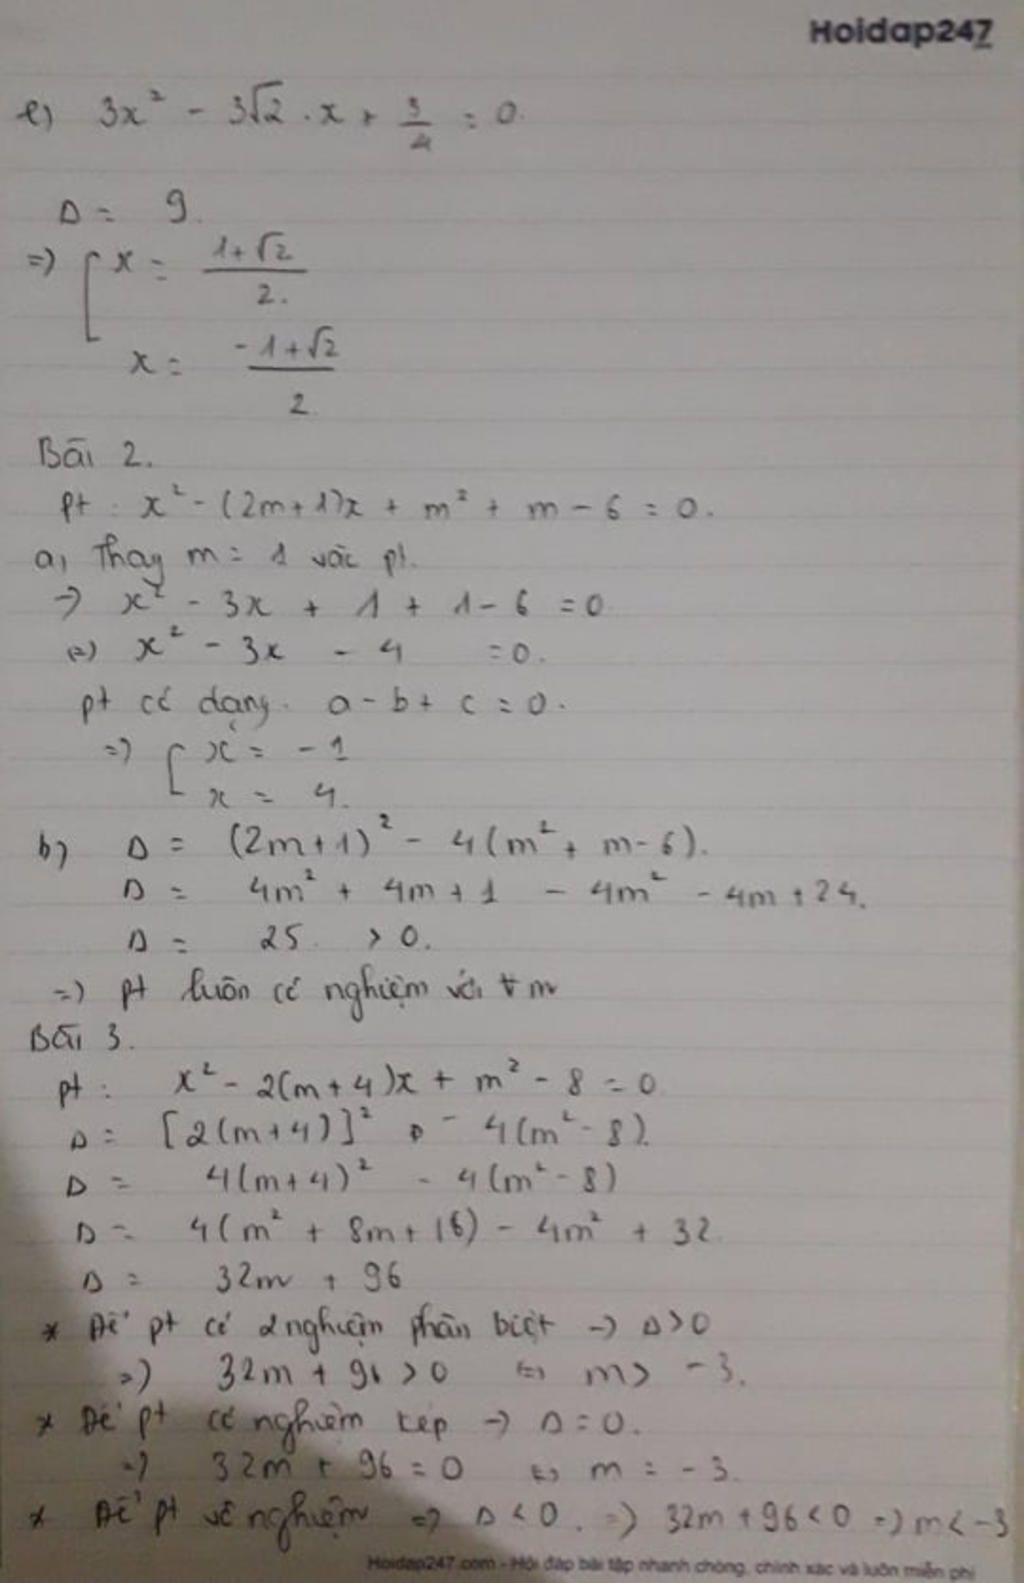 Hoidap247
e) 3x² - 3√2 . x + 3/4 = 0.
Δ = 9.
=> [ x = (1+√2)/2.
x = (-1+√2)/2
Bài 2.
Pt : x² - (2m+1)x + m² + m - 6 = 0.
a, Thay m = 1 vào pt.
-> x² - 3x + 1 + 1 - 6 = 0
(=) x² - 3x - 4 = 0.
pt có dạng. a - b + c = 0.
=> [ x = -1
x = 4.
b) Δ = (2m+1)² - 4(m² + m - 6).
Δ = 4m² + 4m + 1 - 4m² - 4m + 24.
Δ = 25 > 0.
=) pt luôn có nghiệm với ∀ m
Bài 3.
pt : x² - 2(m+4)x + m² - 8 = 0
Δ = [2(m+4)]² - 4(m² - 8).
Δ = 4(m+4)² - 4(m² - 8)
Δ = 4(m² + 8m + 16) - 4m² + 32
Δ = 32m + 96
* Để pt có 2 nghiệm phân biệt -> Δ > 0
=) 32m + 96 > 0 <=> m > -3.
* Để pt có nghiệm kép -> Δ = 0.
=> 32m + 96 = 0 <=> m = -3.
* Để pt vô nghiệm => Δ < 0. =) 32m + 96 < 0 => m < -3
Hoidap247.com - Hỏi đáp bài tập nhanh chóng, chính xác và luôn miễn phí